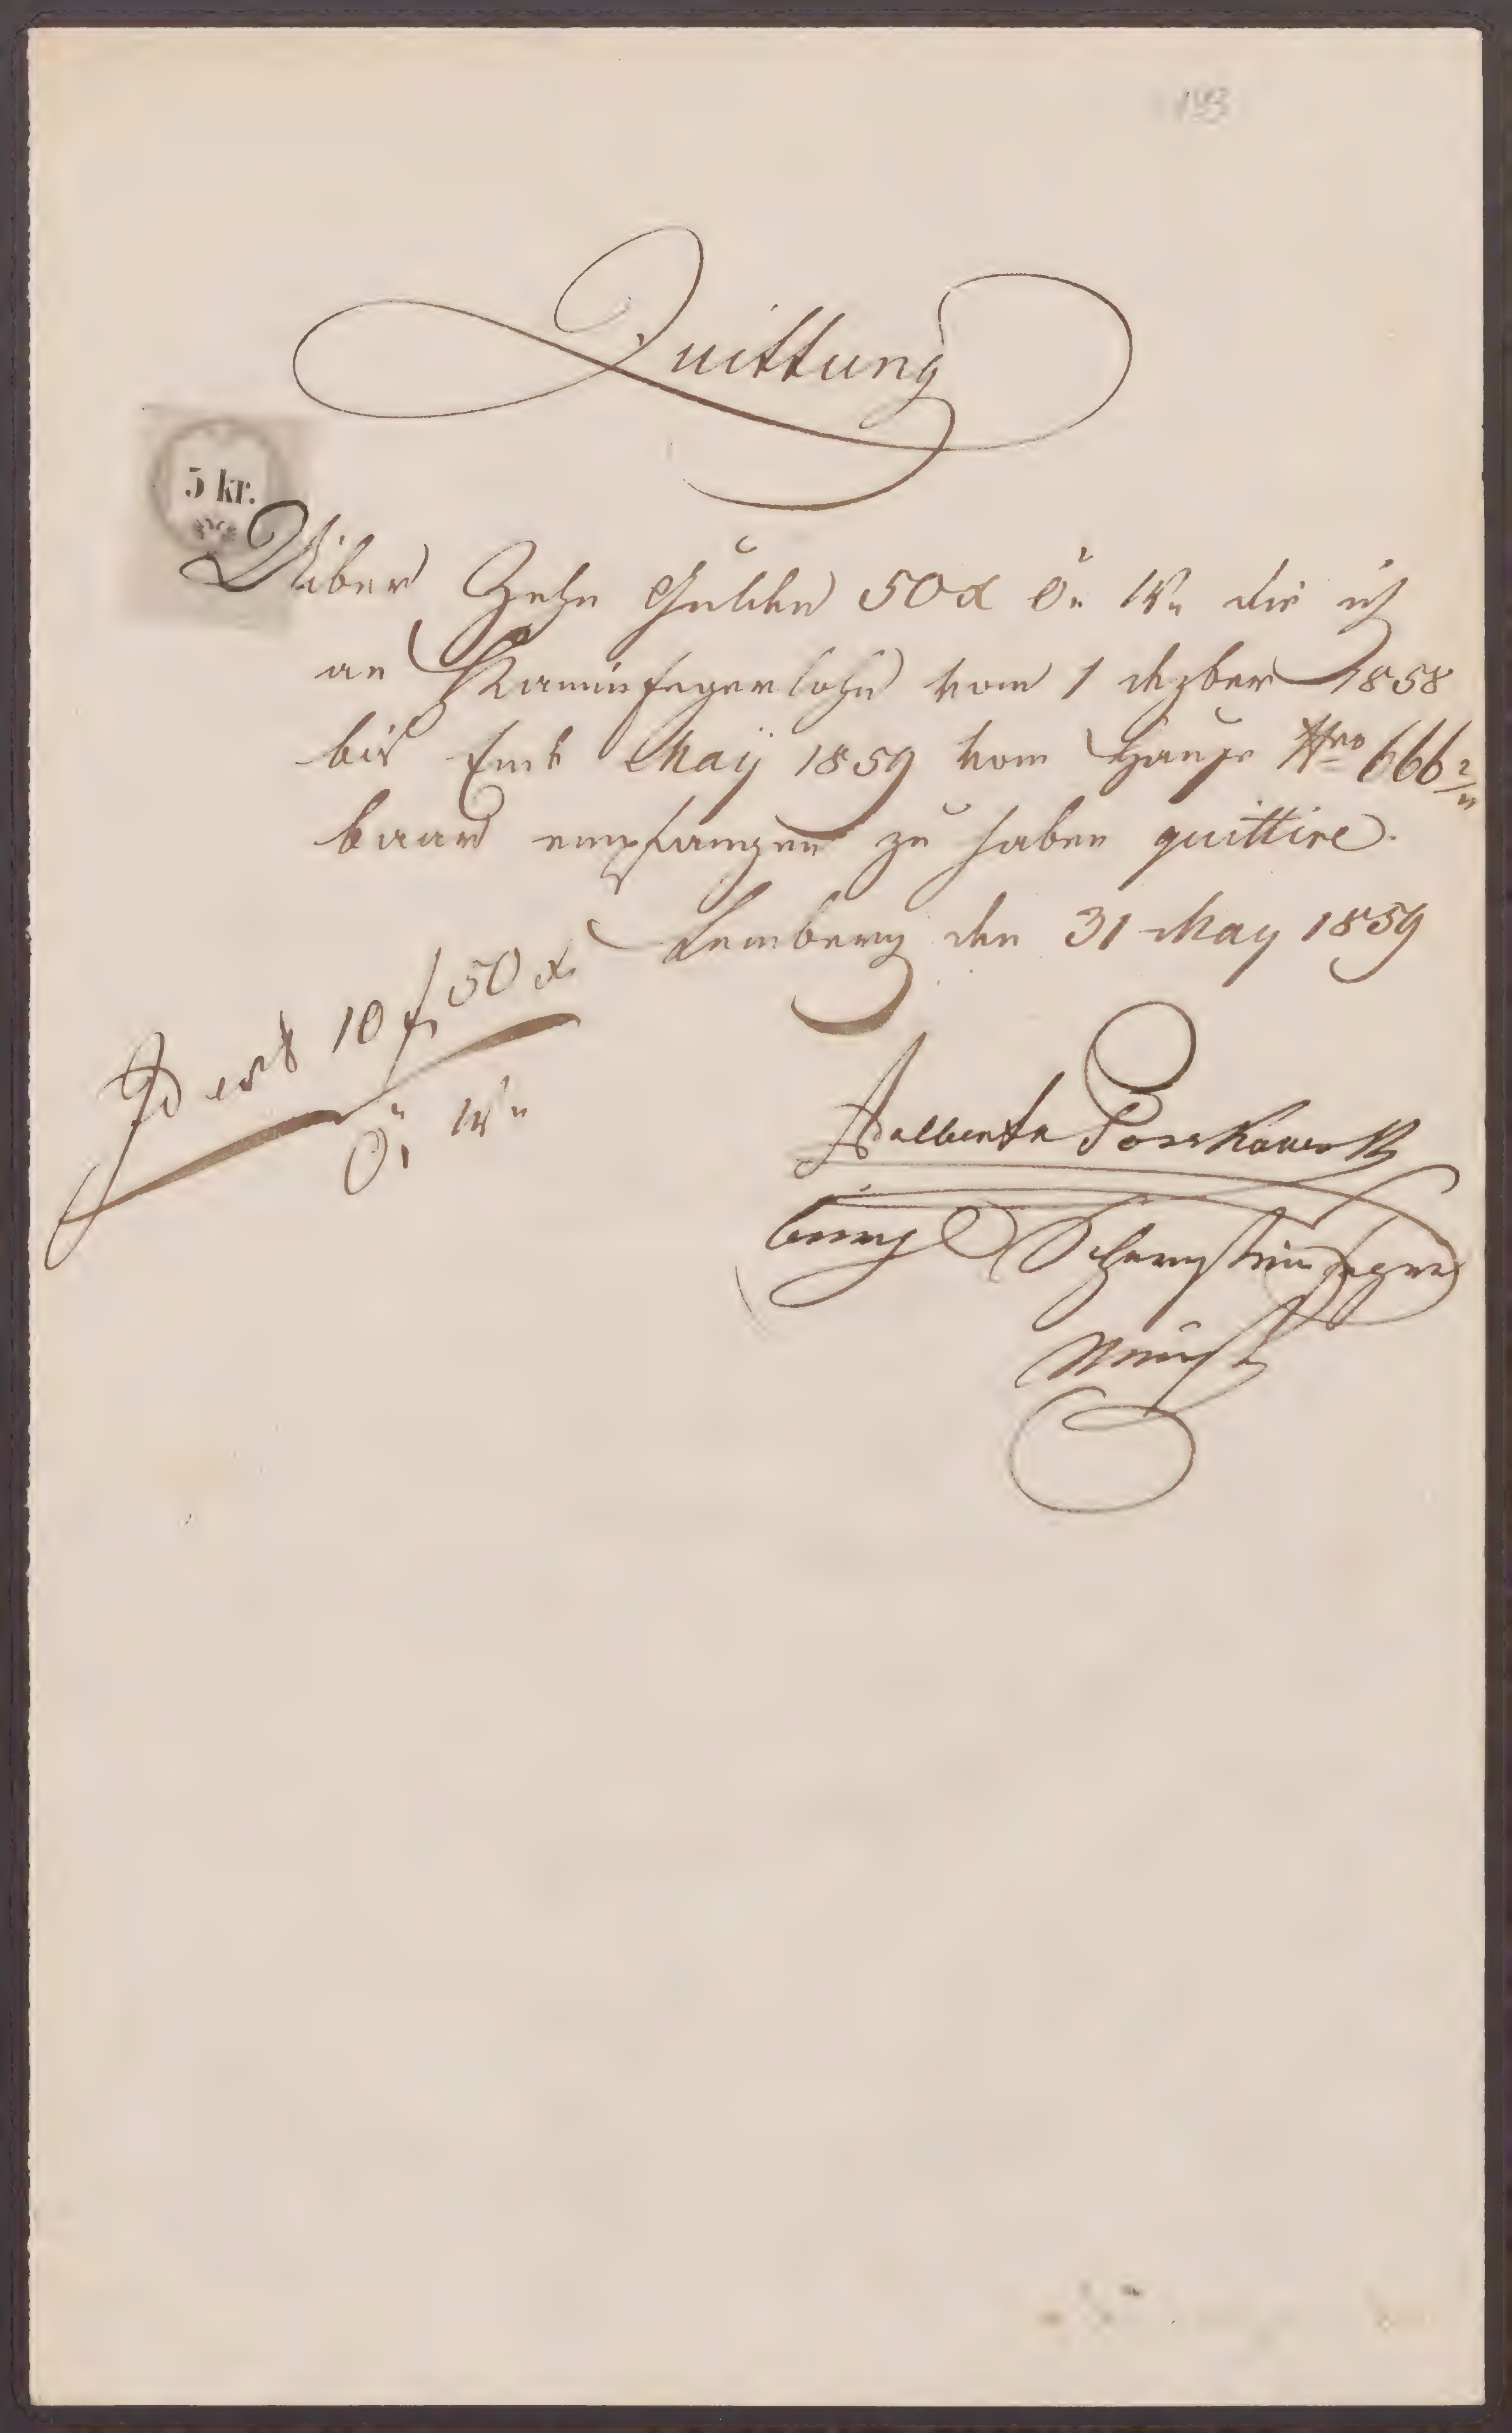 193
Quittung
5 kr.
Uiber Zehn Gulden 50 x ö. W. die ich
an Kaminfegerlohn vom 1 dezber 1858
bis Ende May 1859 vom Hause Nro 666 2/4
baar empfangen zu haben quittire.
Lemberg den 31 May 1859
10 f 50 x
ö. W.
Adalberta
bürgl Schornsteinfeger